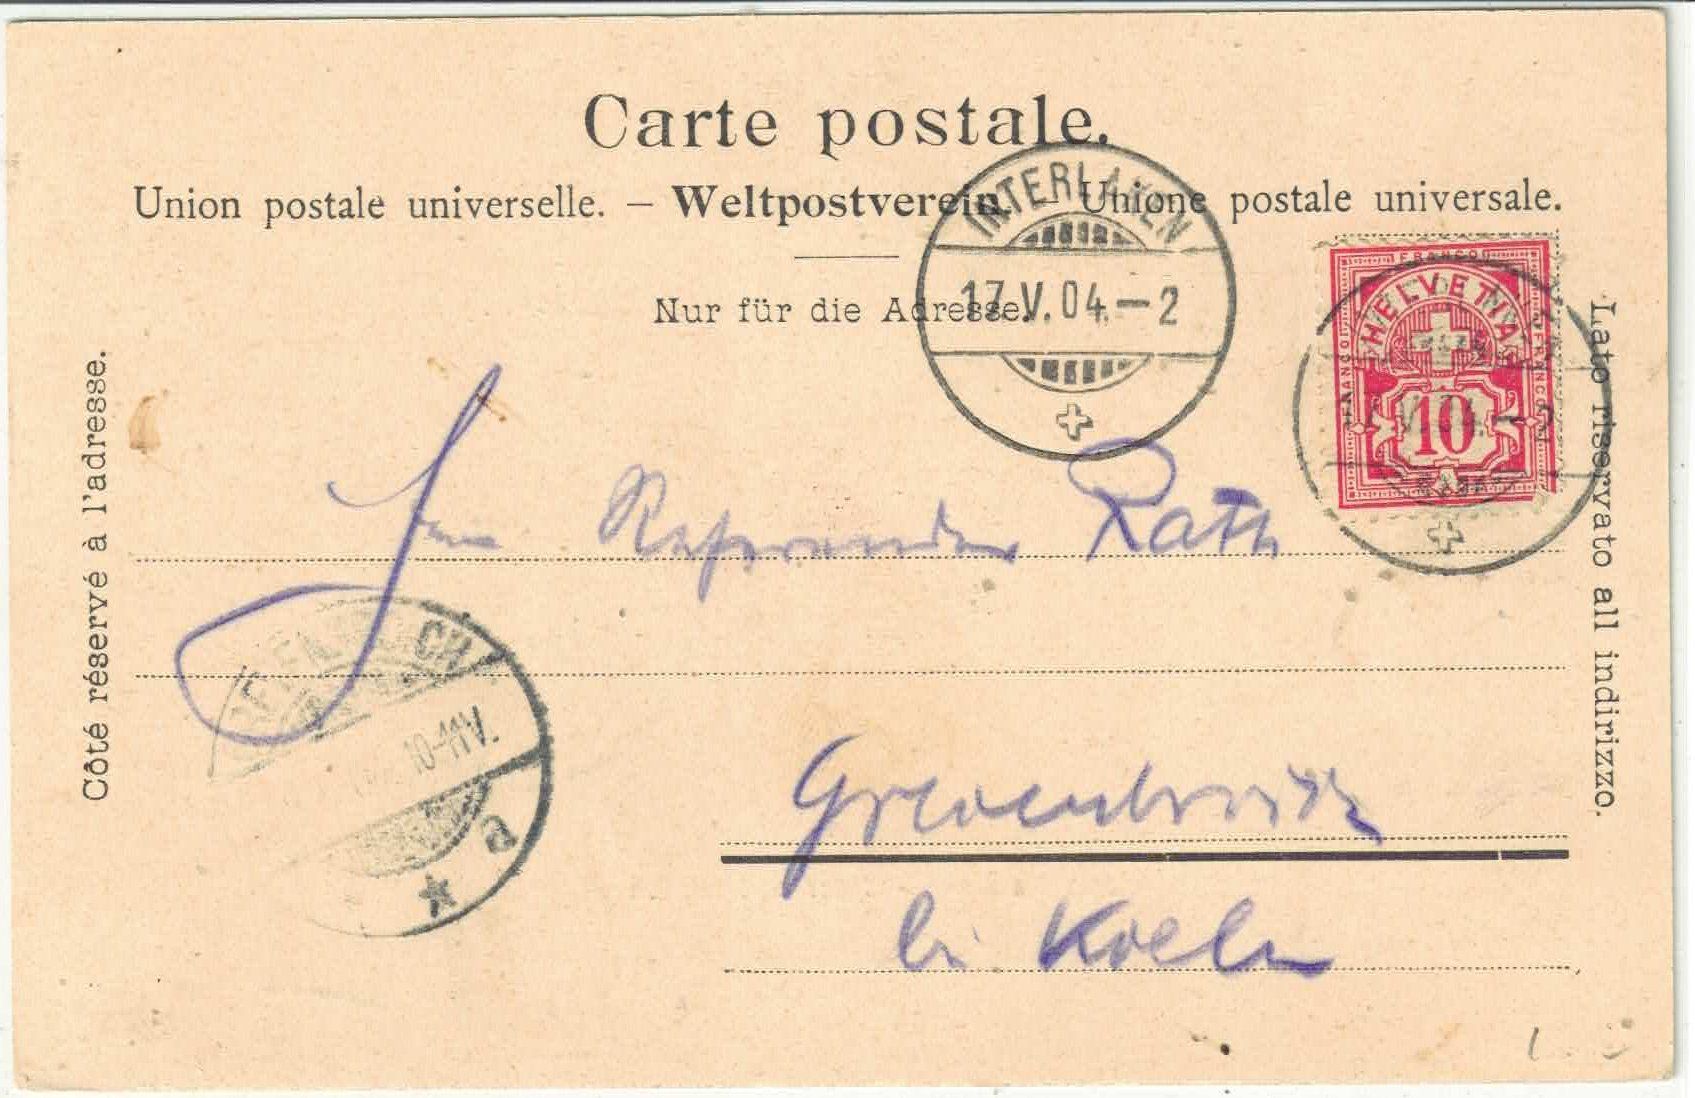 Carte postale.
Union postale universelle. — Weltpostverein. — Unione postale universale.
Nur für die Adresse.
Côté réservé à l'adresse.
Lato riservato all indirizzo.
INTERLAKEN
17.V.04.–2
FRANCO
FRANCO
FRANCO
HELVETIA
10
V.04.–2
Herrn Referendar Rath
Grevenbroich
bei Koeln
CH
10-11V.
a